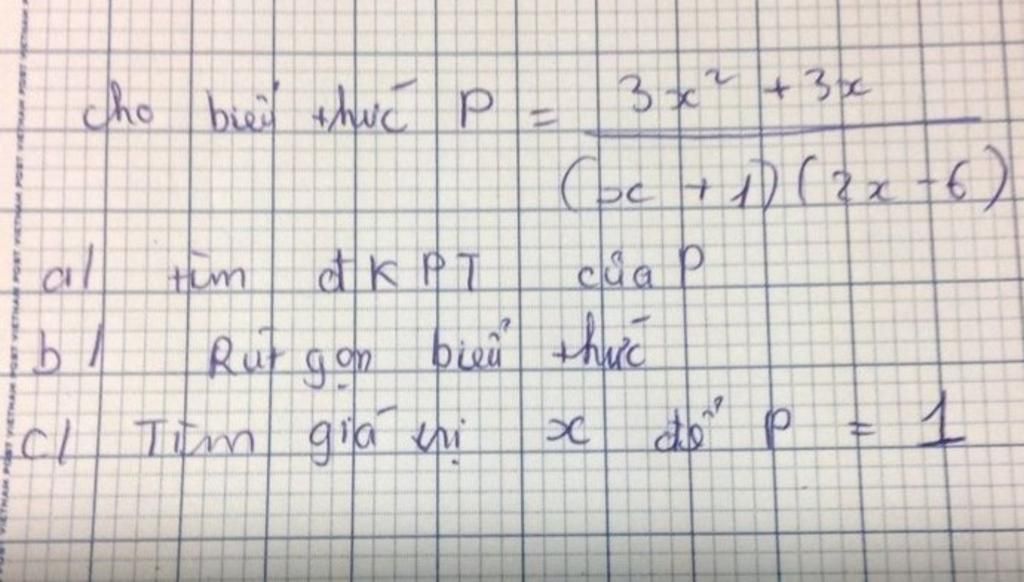 cho biểu thức P = 3x² + 3x / (x + 1)(2x - 6)
a/ tìm đKPT của P
b/ Rút gọn biểu thức
c/ Tìm giá trị x để P = 1